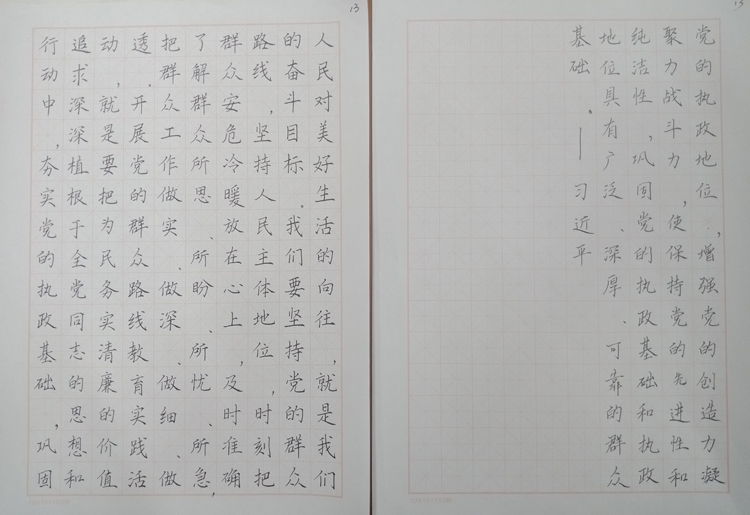 13
人民对美好生活的向往，就是我们
的奋斗目标。我们要坚持党的群众
路线，坚持人民主体地位，时刻把
群众安危冷暖放在心上，及时准确
了解群众所思、所盼、所忧、所急，
把群众工作做实、做深、做细、做
透。开展党的群众路线教育实践活
动，就是要把为民务实清廉的价值
追求深深植根于全党同志的思想和
行动中，夯实党的执政基础，巩固
党的执政地位，增强党的创造力凝
聚力战斗力，使保持党的先进性和
纯洁性，巩固党的执政基础和执政
地位具有广泛、深厚、可靠的群众
基础。——习近平